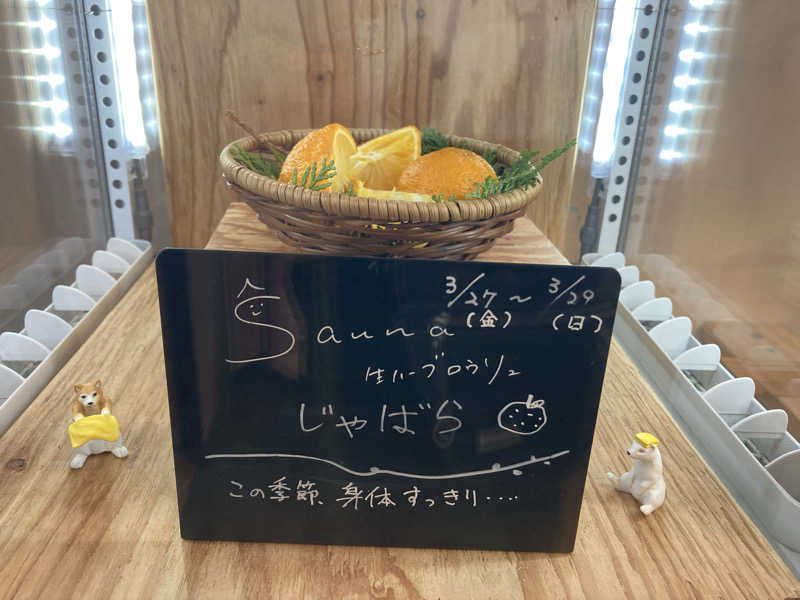 Sauna
3/27～3/29
(金) (日)
生ハーブロウリュ
じゃばら
この季節、身体すっきり‥‥